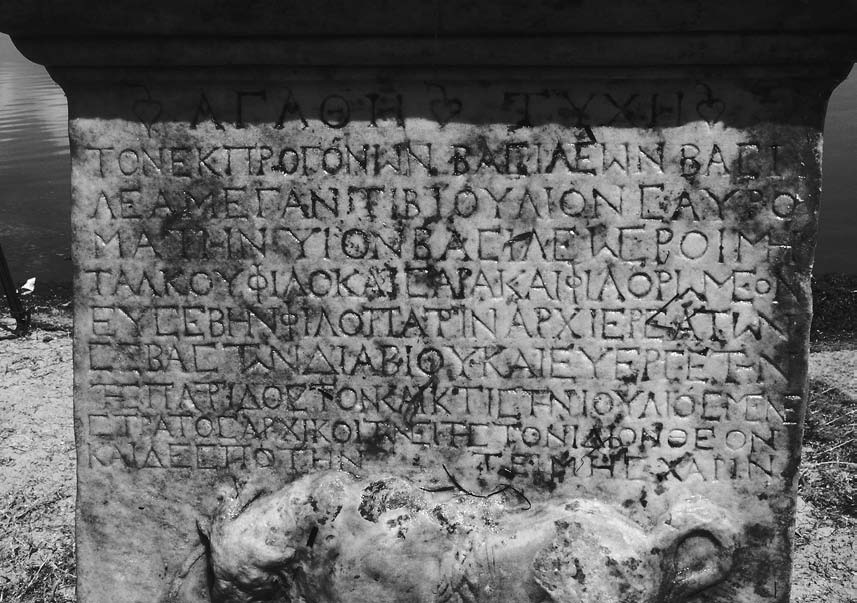 ΑΓΑΘΗ ΤΥΧΗ
ΤΟΝΕΚΠΡΟΓΟΝΩΝΒΑΣΙΛΕΩΝΒΑΣΙ
ΛΕΑΜΕΓΑΝΤΙΒΙΟΥΛΙΟΝΣΑΥΡΟ
ΜΑΤΗΝΥΙΟΝΒΑΣΙΛΕΩΣΡΟΙΜΗ
ΤΑΛΚΟΥΦΙΛΟΚΑΙΣΑΡΑΚΑΙΦΙΛΟΡΩΜΕΟΝ
ΕΥΣΕΒΗΝΦΙΛΟΠΑΤΡΙΝΑΡΧΙΕΡΕΑΤΩΝ
ΣΕΒΑΣΤΩΝΔΙΑΒΙΟΥΚΑΙΕΥΕΡΓΕΤΗΝ
ΠΑΤΡΙΔΟΣΤΟΝΚΑΙΚΤΙΣΤΗΝΙΟΥΛΙΟΣΜΕΝΕ
ΣΤΡΑΤΟΣΑΡΧΙΚΟΙΤΩΝΕΙΤΗΣΤΟΝΙΔΙΟΝΘΕΟΝ
ΚΑΙΔΕΣΠΟΤΗΝ ΤΕΙΜΗΣΧΑΡΙΝ